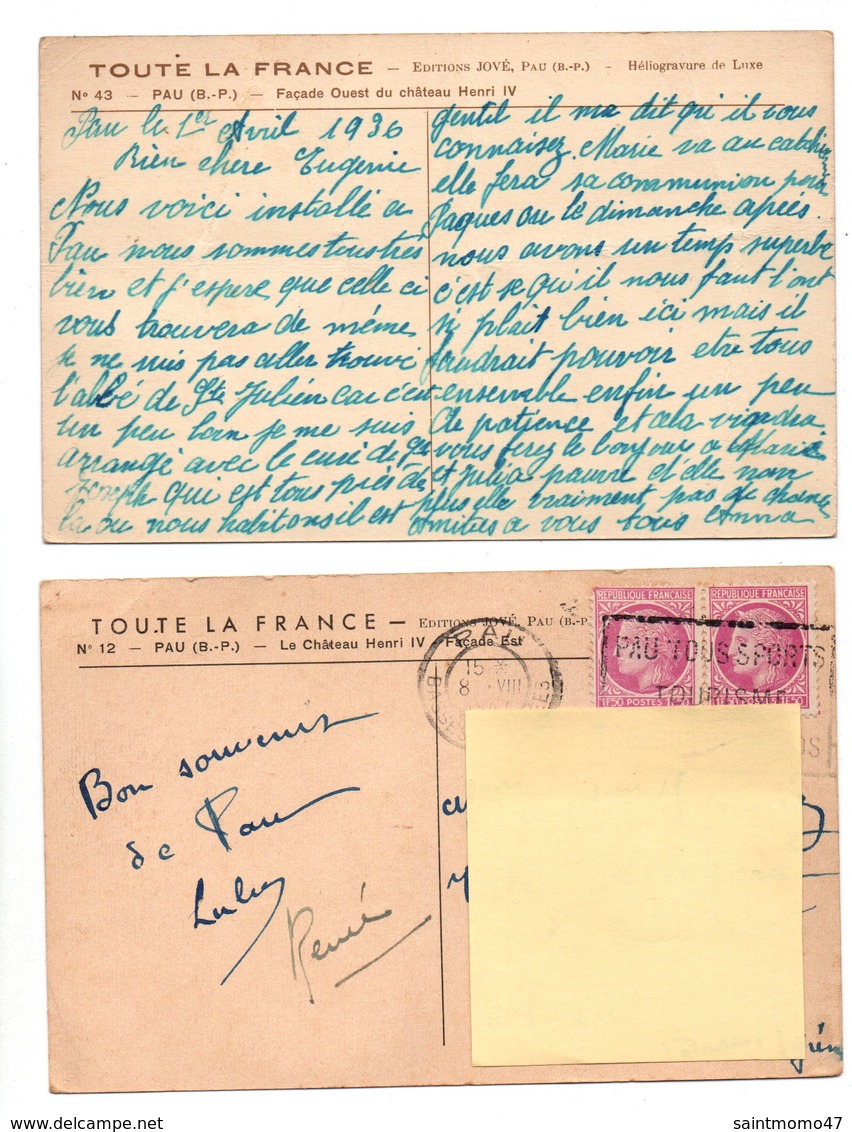 TOUTE LA FRANCE — EDITIONS JOVÉ, PAU (B.-P.) - Héliogravure de Luxe
N° 43 — PAU (B.-P.) — Façade Ouest du château Henri IV
Pau le 1er Avril 1936
Bien chere Eugenie
Nous voici installé a
Pau nous sommes tous très
bien et j'espere que celle ci
vous trouvera de même
je ne suis pas aller trouvé
l'abbé de Ste Julien car c'est
un peu loin je me suis
arrangé avec le curé de
Joseph qui est tous près de
la ou nous habitons il est
gentil il ma dit qu'il vous
connaisez. Marie va au
elle fera sa communion pour
Paques ou le dimanche après.
nous avons un temps superbe
c'est se qu'il nous faut
si plait bien ici mais il
faudrait pouvoir etre tous
ensemble enfin un peu
de patience et cela viendra.
vous ferez le bonjour a
et Julia pauvre d'elle non
plus elle vraiment pas de chance
Amitiés a vous tous Anna
TOUTE LA FRANCE — EDITIONS JOVÉ, PAU (B.-P.
N° 12 — PAU (B.-P.) — Le Château Henri IV - Façade Est
PAU
15 *
8 VIII
REPUBLIQUE FRANÇAISE
1F50 POSTES
REPUBLIQUE FRANÇAISE
PAU TOUS SPORTS
TOURISME
Bon souvenir
de Pau
René